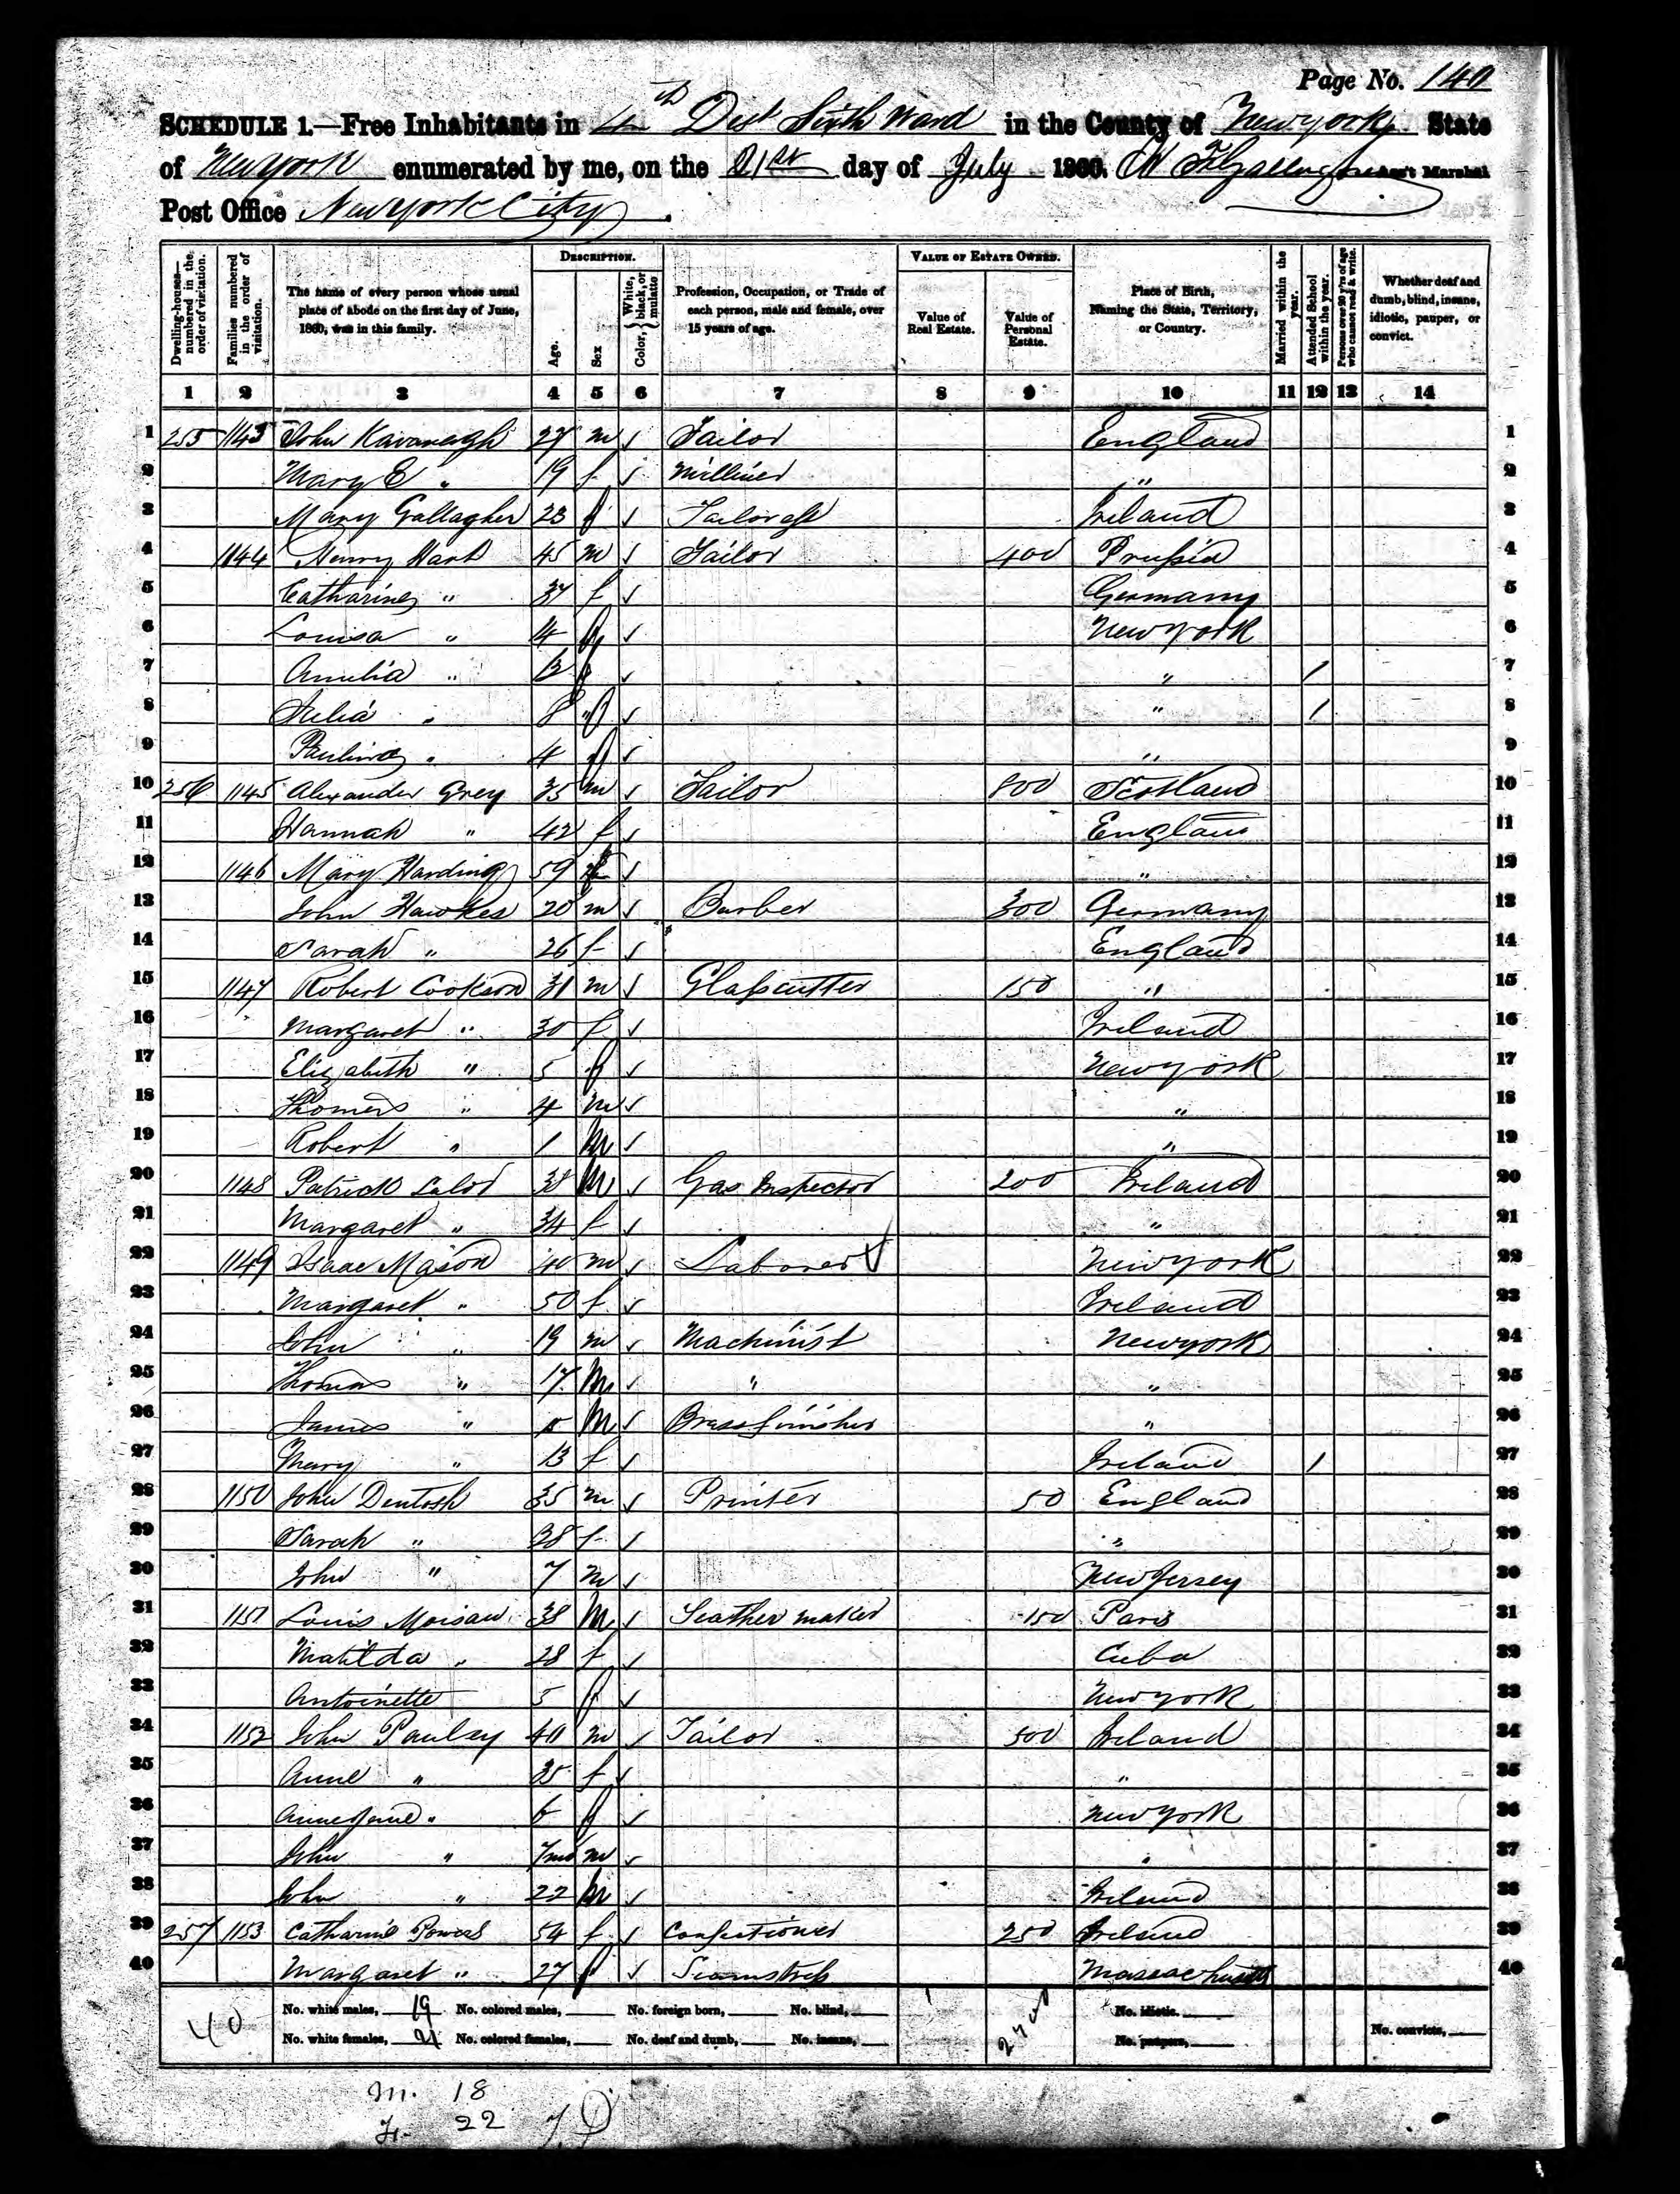 Page No. 140
SCHEDULE 1.—Free Inhabitants in 4th Dist Sixth Ward in the County of New york State
of New york enumerated by me, on the 21st day of July 1860. Ass't Marshal
Post Office New york City.
Dwelling-houses—numbered in the order of visitation.
Families numbered in the order of visitation.
The name of every person whose usual place of abode on the first day of June, 1860, was in this family.
DESCRIPTION.
Age.
Sex
Color, { White, black, or mulatto
Profession, Occupation, or Trade of each person, male and female, over 15 years of age.
VALUE OF ESTATE OWNED.
Value of Real Estate.
Value of Personal Estate.
Place of Birth, Naming the State, Territory, or Country.
Married within the year.
Attended School within the year.
Persons over 20 y'rs of age who cannot read & write.
Whether deaf and dumb, blind, insane, idiotic, pauper, or convict.
1 2 3 4 5 6 7 8 9 10 11 12 13 14
1 255 1143 John Kavanagh 27 m ✓ Tailor England 1
2 Mary E " 19 f ✓ Milliner " 2
3 Mary Gallagher 23 f ✓ Tailoress Ireland 3
4 1144 Henry Hart 45 m ✓ Tailor 400 Prussia 4
5 Catharine " 37 f ✓ Germany 5
6 Louisa " 14 f ✓ New york 6
7 Amelia " 12 f ✓ " 1 7
8 Julia " 8 f ✓ " 1 8
9 Paulina " 4 f ✓ " 9
10 256 1145 Alexander Grey 35 m ✓ Tailor 800 Scotland 10
11 Hannah " 42 f ✓ England 11
12 1146 Mary Harding 59 f ✓ " 12
13 John Hawkes 20 m ✓ Barber 300 Germany 13
14 Sarah " 26 f ✓ England 14
15 1147 Robert Cookson 31 m ✓ Glasscutter 150 " 15
16 Margaret " 30 f ✓ Ireland 16
17 Elizabeth " 5 f ✓ New york 17
18 Thomas " 4 m ✓ " 18
19 Robert " 1 m ✓ " 19
20 1148 Patrick Lalor 38 m ✓ Gas Inspector 200 Ireland 20
21 Margaret " 34 f ✓ " 21
22 1149 Isaac Mason 40 m ✓ Laborer New york 22
23 Margaret " 50 f ✓ Ireland 23
24 John " 19 m ✓ Machinist New york 24
25 Thomas " 17 m ✓ " " 25
26 James " m ✓ Brass finisher " 26
27 Mary " 13 f ✓ Ireland 1 27
28 1150 John Dentosh 35 m ✓ Printer 50 England 28
29 Sarah " 38 f ✓ " 29
30 John " 7 m ✓ New Jersey 30
31 1151 Louis Moisan 38 m ✓ Feather maker 150 Paris 31
32 Matilda " 28 f ✓ Cuba 32
33 Antoinette 5 f ✓ New york 33
34 1152 John Paulsy 40 m ✓ Tailor 500 Ireland 34
35 Anne " 35 f ✓ " 35
36 Anne Jane " 6 f ✓ New york 36
37 John " 7mo m ✓ " 37
38 John " 22 m ✓ Ireland 38
39 257 1153 Catharine Powers 54 f ✓ Confectioner 250 Ireland 39
40 Margaret " 27 f ✓ Seamstress Massachusetts 40
40 No. white males, 19 No. colored males, No. foreign born, No. blind, No. idiotic.
No. white females, 21 No. colored females, No. deaf and dumb, No. insane, No. paupers, No. convicts,
m. 18
f. 22